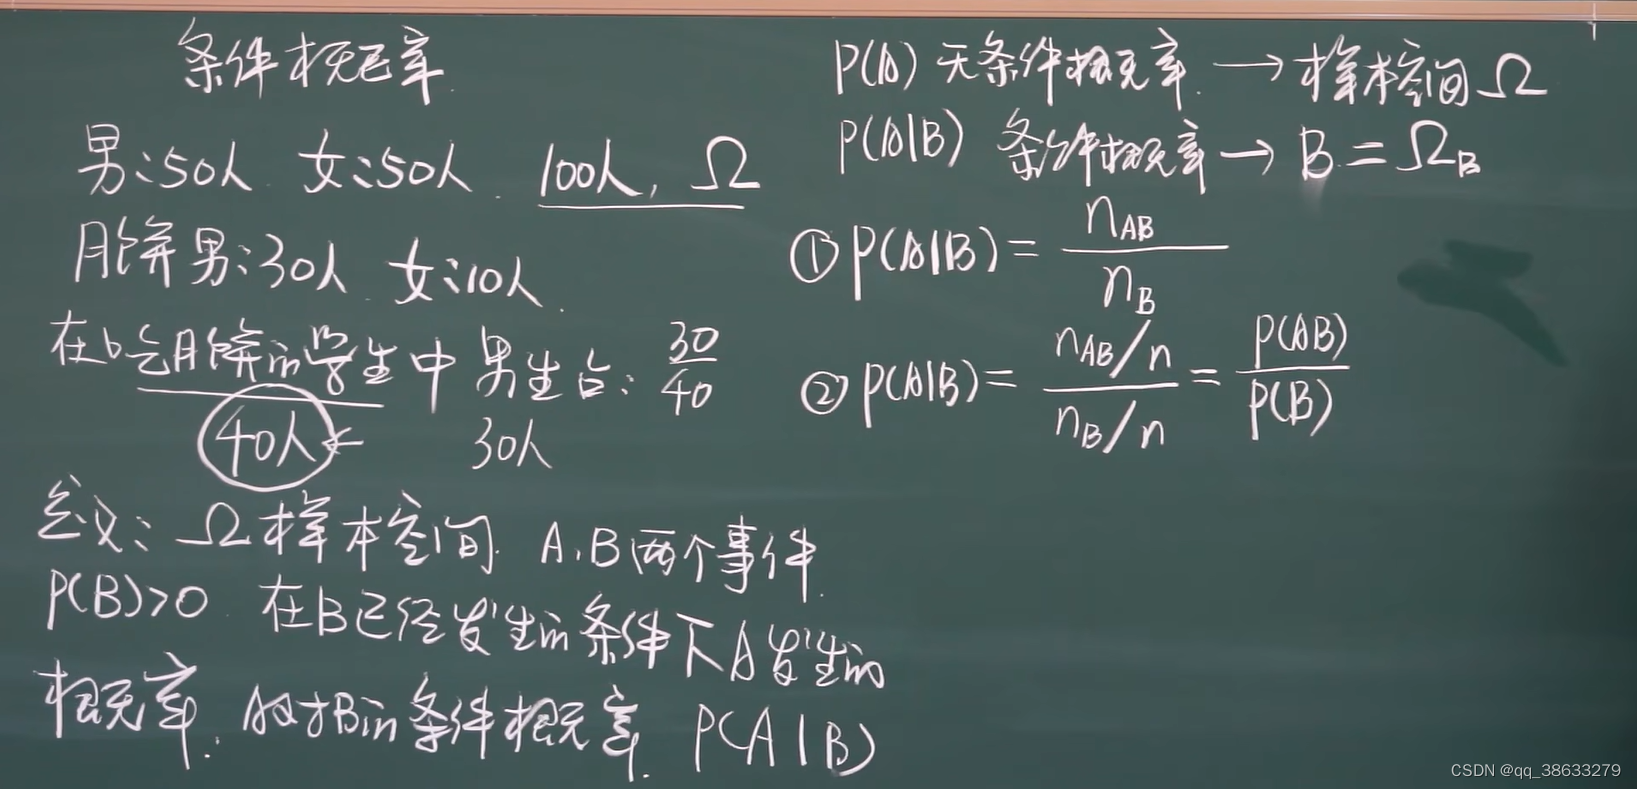 条件概率
男:50人 女:50人. 100人, Ω
月饼男:30人 女:10人.
在吃月饼的学生中 男生占: 30/40
40人 ← 30人
定义: Ω样本空间. A,B两个事件.
P(B)>0 在B已经发生的条件下A发生的
概率. A对于B的条件概率. P(A|B)
P(A) 无条件概率. → 样本空间Ω
P(A|B) 条件概率 → B = Ω_B
① P(A|B) = n_AB / n_B
② P(A|B) = (n_AB/n) / (n_B/n) = P(AB) / P(B)
CSDN @qq_38633279